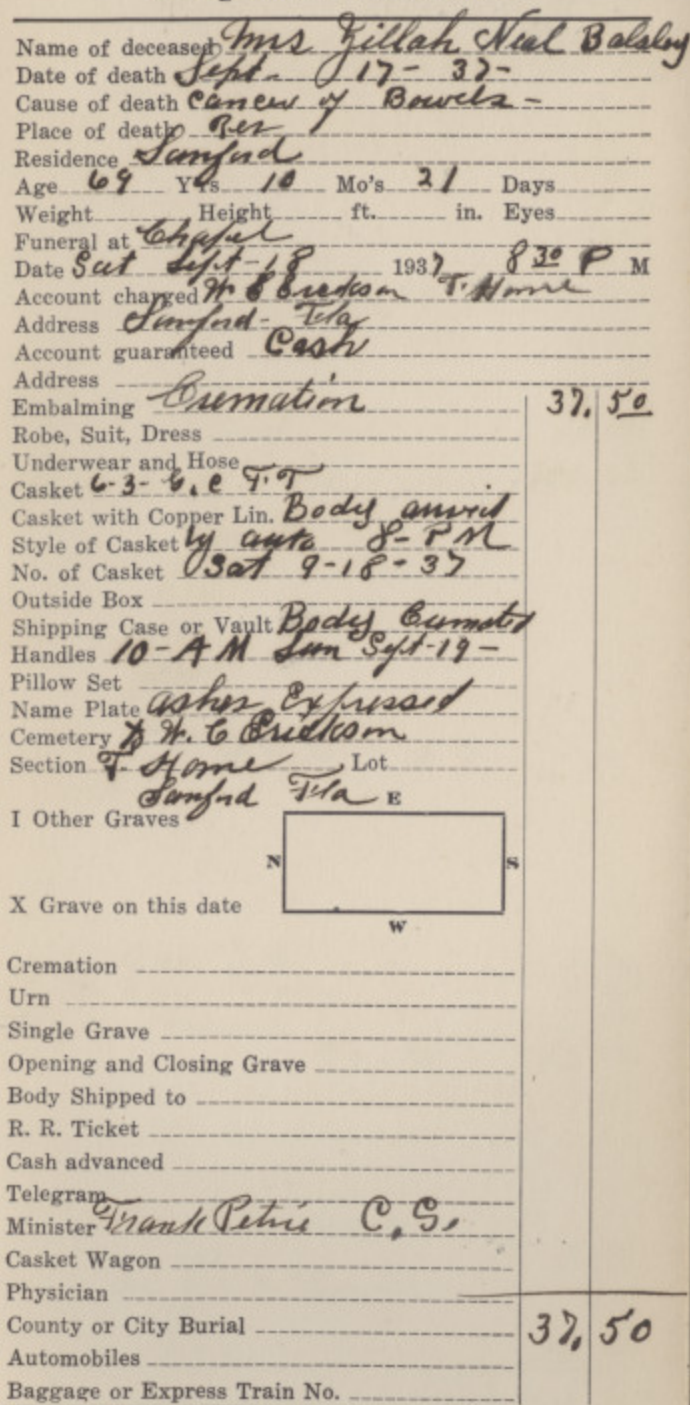 Name of deceased Mrs Zillah Neal Balsley
Date of death Sept. 17- 37-
Cause of death Cancer of Bowels -
Place of death Res
Residence Sanford
Age 69 Yrs 10 Mo's 21 Days
Weight Height ft. in. Eyes
Funeral at Chapel
Date Sat Sept-18 1937 8 30 P M
Account charged W E Erickson F. Home
Address Sanford - Fla
Account guaranteed Cash
Address
Embalming Cremation 37. 50
Robe, Suit, Dress
Underwear and Hose
Casket 6-3- G. C F.T
Casket with Copper Lin. Body arrived
Style of Casket by auto 8- P M
No. of Casket Sat 9-18-37
Outside Box
Shipping Case or Vault Body Cremated
Handles 10-AM Sun Sept-19-
Pillow Set
Name Plate ashes Expressed
Cemetery to W. C Erickson
Section F. Home Lot
Sanford Fla
E
I Other Graves
N S
X Grave on this date
W
Cremation
Urn
Single Grave
Opening and Closing Grave
Body Shipped to
R. R. Ticket
Cash advanced
Telegram
Minister Frank Petrie C. S.
Casket Wagon
Physician
County or City Burial 37, 50
Automobiles
Baggage or Express Train No.